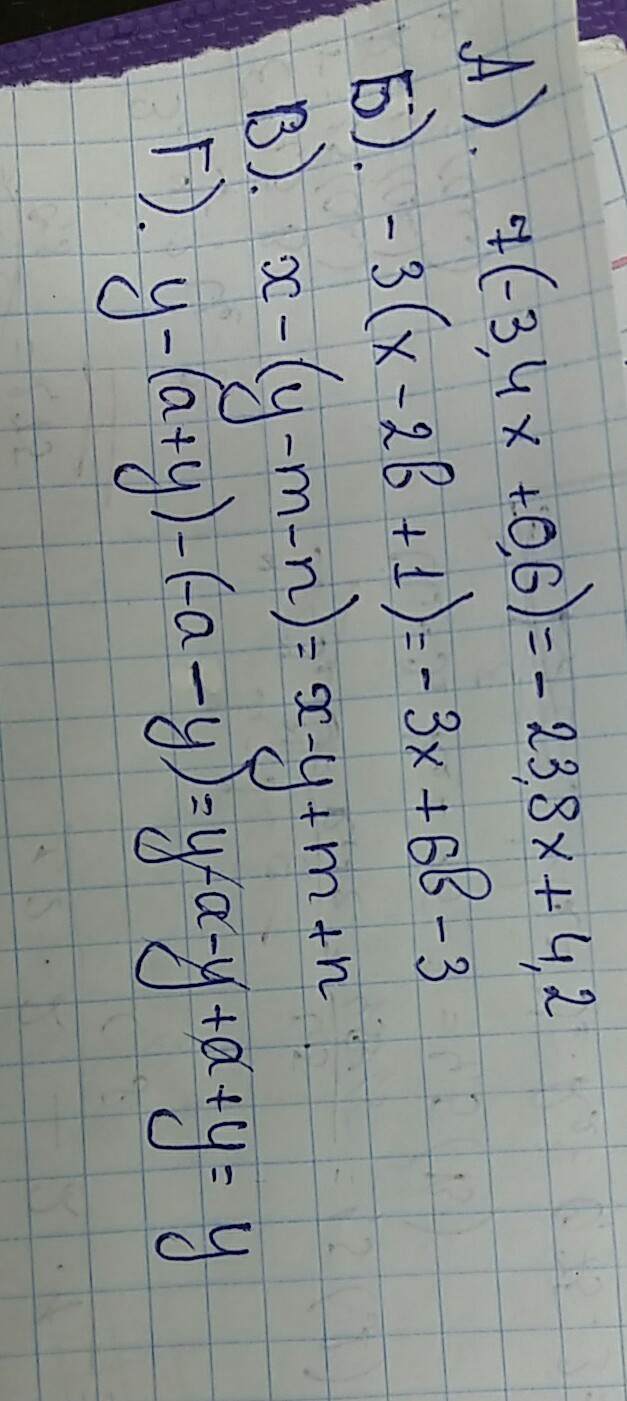 А). 7(-3,4х +0,6)=- 23,8х+ 4,2
Б). -3(х-2в +1)=- 3х+6в-3
В). x-(y-m-n)= x-y+m+n
Г). y-(a+y)-(-a-y)=y-a-y+a+y= y